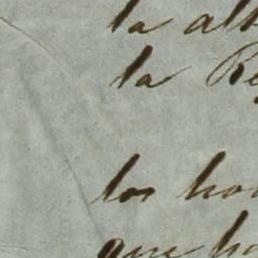 la alb
la Re
los ho
que h